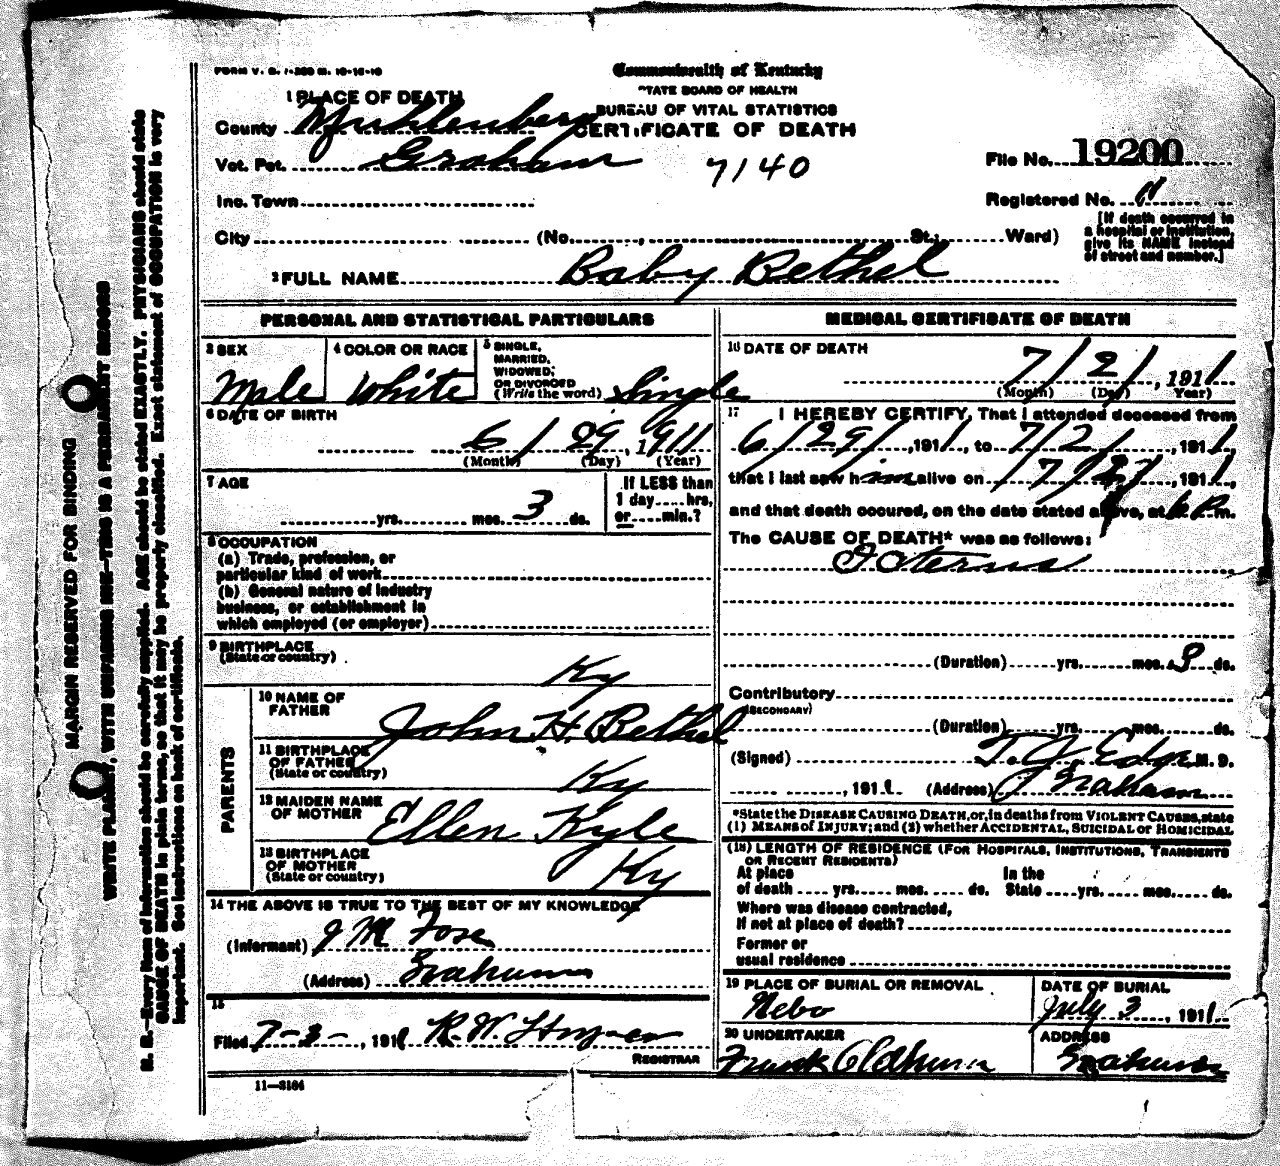 FORM V. S. 1-
Commonwealth of Kentucky
STATE BOARD OF HEALTH
BUREAU OF VITAL STATISTICS
CERTIFICATE OF DEATH
7140
1 PLACE OF DEATH
County Muhlenberg
Vot. Pct. Graham
Inc. Town
City (No. , St.; Ward)
File No. 19200
Registered No. 11
[If death occurred in
a hospital or institution,
give its NAME instead
of street and number.]
2 FULL NAME Baby Bethel
PERSONAL AND STATISTICAL PARTICULARS
3 SEX
Male
4 COLOR OR RACE
White
5 SINGLE,
MARRIED,
WIDOWED,
OR DIVORCED
(Write the word) Single
6 DATE OF BIRTH
6 / 29, 1911
(Month) (Day) (Year)
7 AGE
yrs. mos. 3 ds.
If LESS than
1 day hrs.
or min.?
8 OCCUPATION
(a) Trade, profession, or
particular kind of work
(b) General nature of industry
business, or establishment in
which employed (or employer)
9 BIRTHPLACE
(State or country)
Ky
PARENTS
10 NAME OF
FATHER
John H. Bethel
11 BIRTHPLACE
OF FATHER
(State or country)
Ky
12 MAIDEN NAME
OF MOTHER
Ellen Kyle
13 BIRTHPLACE
OF MOTHER
(State or country)
Ky
14 THE ABOVE IS TRUE TO THE BEST OF MY KNOWLEDGE
(Informant) J M
(Address) Graham
15
Filed 7-3-, 1911 R. W.
REGISTRAR
11-3184
MEDICAL CERTIFICATE OF DEATH
16 DATE OF DEATH
7 / 2 /, 1911
(Month) (Day) (Year)
17 I HEREBY CERTIFY, That I attended deceased from
6/29/, 1911, to 7/2/, 1911,
that I last saw him alive on 7/2/, 1911,
and that death occured, on the date stated above, at 6 P m.
The CAUSE OF DEATH* was as follows:
Icterus
(Duration) yrs. mos. 3 ds.
Contributory
(SECONDARY)
(Duration) yrs. mos. ds.
(Signed) T. J. Edge M. D.
, 1911 (Address) Graham
*State the DISEASE CAUSING DEATH, or, in deaths from VIOLENT CAUSES, state
(1) MEANS OF INJURY; and (2) whether ACCIDENTAL, SUICIDAL or HOMICIDAL
(18) LENGTH OF RESIDENCE (FOR HOSPITALS, INSTITUTIONS, TRANSIENTS
OR RECENT RESIDENTS)
At place
of death yrs. mos. ds.
In the
State yrs. mos. ds.
Where was disease contracted,
If not at place of death?
Former or
usual residence
19 PLACE OF BURIAL OR REMOVAL
Nebo
DATE OF BURIAL
July 3, 1911
20 UNDERTAKER
Frank Oldham
ADDRESS
Graham
MARGIN RESERVED FOR BINDING
WRITE PLAINLY, WITH UNFADING INK—THIS IS A PERMANENT RECORD
N. B.—Every item of information should be carefully supplied. AGE should be stated EXACTLY. PHYSICIANS should state
CAUSE OF DEATH in plain terms, so that it may be properly classified. Exact statement of OCCUPATION is very
important. See instructions on back of certificate.